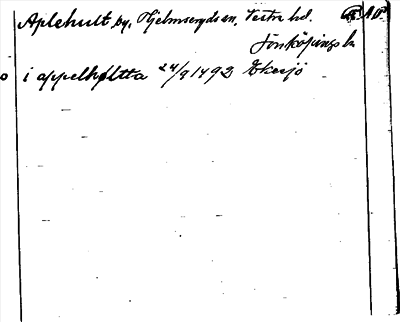 Aplehult by, Hjelmseryds sn, Västra hd. A.D.
Jönköpings ln
o i appelhøltta 24/9 1492 Eksjö